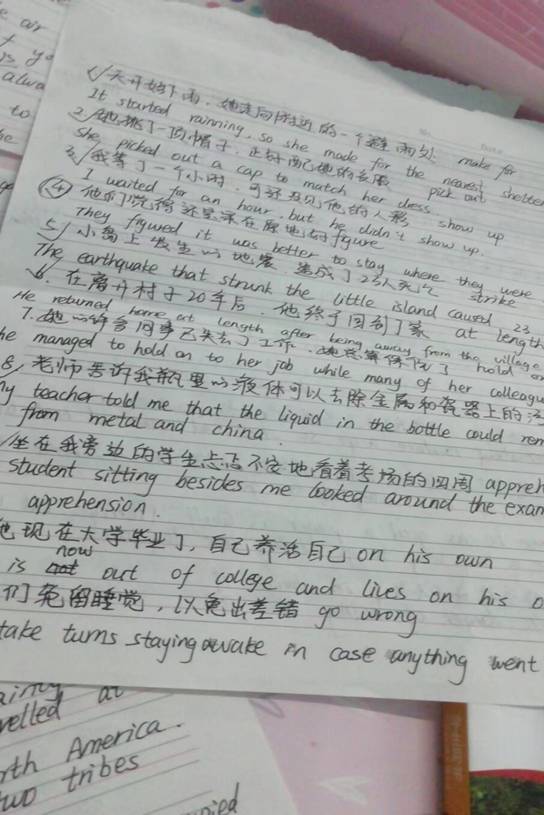 1/天开始下雨，她走向附近的一个避雨处 make for
It started rainning, so she made for the nearest shelter
2/她挑了一顶帽子，正好配她的衣服 pick out
She picked out a cap to match her dress
3/我等了一个小时，可还没见他的人影 show up
I waited for an hour, but he didn't show up.
④他们觉得还是呆在原地好 figure
They figured it was better to stay where they were
5/小岛上发生的地震造成了23人死亡 strike
The earthquake that strunk the little island caused 23
6.在离开村子20年后，他终于回到了家 at length
He returned home at length after being away from the village
7.她的许多同事已失去了工作，她总算保住了 hold on
he managed to hold on to her job while many of her colleagu
8.老师告诉我瓶里的液体可以去除金属和瓷器上的
my teacher told me that the liquid in the bottle could rem
from metal and china.
坐在我旁边的学生忐忑不安地看着考场的四周 appreh
student sitting besides me looked around the exam
apprehension.
他现在大学毕业了，自己养活自己 on his own
is now out of college and lives on his o
们轮留睡觉，以免出差错 go wrong
take turns staying awake in case anything went
air
alwa
to
velled at
rth America.
two tribes
pied